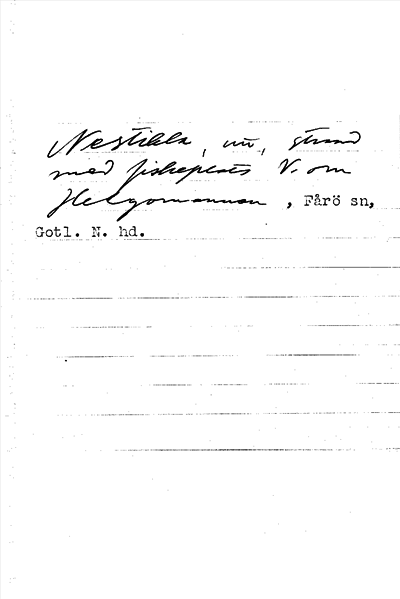 Nestikla, un, strand
med fiskeplats V. om
Helgomannen, Fårö sn,
Gotl. N. hd.